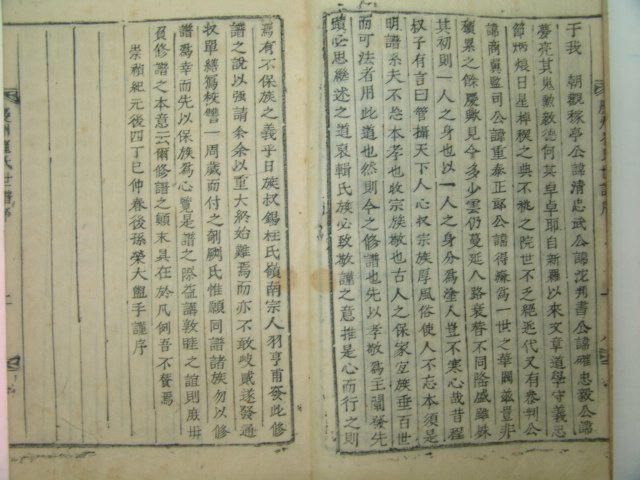 于我 朝觀稼亭公諱清忠武公諱沈判書公諱確忠毅公諱
夢亮其鬼勲敷德何其卓卓耶自新羅以來文章道學守義忌
節炳烺日星棹稧之典不祧之院世不乏絕近代又有叅判公
諱商翼監司公諱重泰正郎公諱得 爲一世之華閥玆豈非
積累之餘慶歟見今多少雲仍蔓延八路衰替不同隆盛雖姝
其初則一人之身也以一人之身分爲塗人豈不寒心哉昔程
叔子有言曰管攝天下人心収宗族厚風俗使人不忘本須是
明譜系夫不忘本孝也收宗族敬也古人之保家宜族垂百世
而可法者用此道也然則今之修譜也先以孝敬爲主 發先
蹟必思繼述之道裒輯氏族必致敬謹之意推是心而行之則
焉有不保族之義乎日族叔錫柱氏嶺南宗人羽亨甫發此修
譜之說以強請余余以重大終始難焉而亦不敢歧貳遂發通
収單繕寫校讐一周歲而付之剞劂氏惟願同譜諸族勿以修
譜爲幸而先以保族爲心覽是譜之際益講敦睦之誼則庶毋
負修譜之本意云爾修譜之顚末具在於凡例吾不贅焉
崇禎紀元後四丁巳仲春後孫榮大盥手謹序
慶州崔氏世譜序
慶州崔氏世譜序